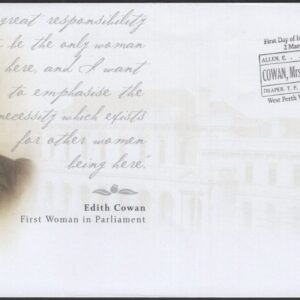 great responsibility
be the only woman
here, and I want
to emphasise the
necessity which exists
for other women
being here."
Edith Cowan
First Woman in Parliament
First Day of I
2 Mar
ALLEN, E.
COWAN, Mrs
DRAPER, T. P.
West Perth